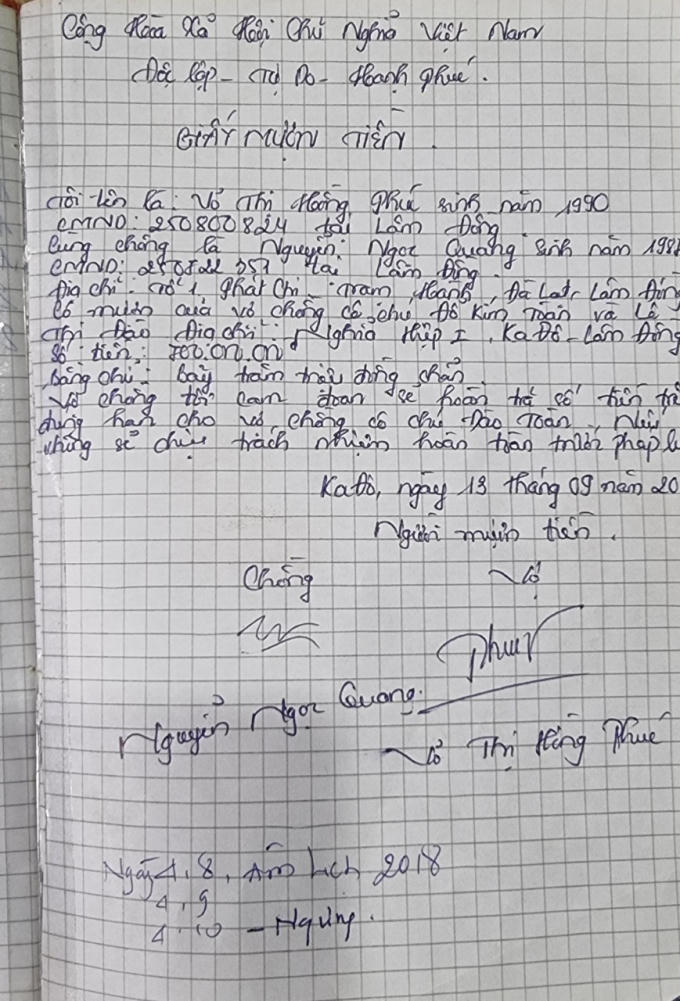 Cộng Hòa Xã Hội Chủ Nghĩa Việt Nam
Độc lập - Tự Do - Hạnh phúc.
GIẤY MƯỢN TIỀN.
Tôi tên là: Võ Thị Hồng Phúc sinh năm 1990
CMND: 250800824 tại Lâm Đồng.
Cùng chồng là Nguyễn Ngọc Quang sinh năm 198
CMND: 250822 351 tại Lâm Đồng.
Địa chỉ: Tổ 1, Phát Chi - Trạm Hành, Đà Lạt, Lâm Đồng
Có mượn của vợ chồng cô chú Đỗ Kim Toàn và Lê
Thị Đào Địa chỉ: Nghĩa Hiệp I, Ka Đô - Lâm Đồng
Số tiền: 700.000.000đ
Bằng chữ: bảy trăm triệu đồng chẵn.
Vợ chồng tôi cam đoan sẽ hoàn trả số tiền
đúng hạn cho vợ chồng cô chú Đào Toàn, Nếu
không sẽ chịu trách nhiệm hoàn toàn trước pháp l
KaĐô, ngày 13 tháng 09 năm 20
Người mượn tiền.
Chồng Vợ
Phúc
Nguyễn Ngọc Quang.
Võ Thị Hồng Phúc
Ngày 4, 8, Âm Lịch 2018
4, 9
4. 10 - Ngừng.